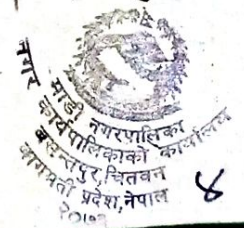 माडी नगरपालिका
नगर कार्यपालिकाको कार्यालय
बसन्तपुर, चितवन
बागमती प्रदेश, नेपाल
२०७३
४